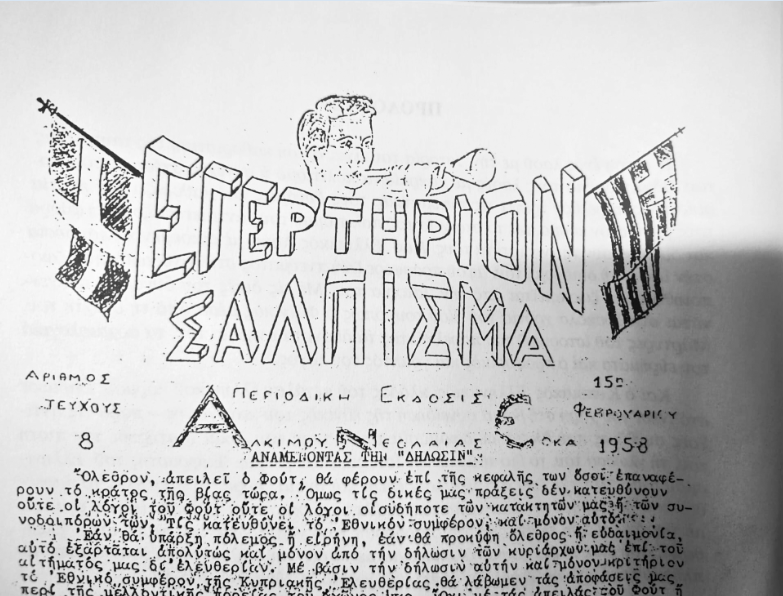 ΕΓΕΡΤΗΡΙΟΝ
ΣΑΛΠΙΣΜΑ
ΑΡΙΘΜΟΣ
ΤΕΥΧΟΥΣ
8
ΠΕΡΙΟΔΙΚΗ ΕΚΔΟΣΙΣ
ΑΛΚΙΜΟΥ ΝΕΟΛΑΙΑΣ ΕΟΚΑ
15η
ΦΕΒΡΟΥΑΡΙΟΥ
1958
ΑΝΑΜΕΝΟΝΤΑΣ ΤΗΝ "ΔΗΛΩΣΙΝ"
Ὄλεθρον, ἀπειλεῖ ὁ Φούτ, θά φέρουν ἐπί τῆς κεφαλῆς των ὅσοι ἐπαναφέ-
ρουν τό κράτος τῆς βίας τώρα. Ὅμως τίς δικές μας πράξεις δέν κατευθύνουν
οὔτε οἱ λόγοι τοῦ Φούτ οὔτε οἱ λόγοι οἱουδήποτε τῶν κατακτητῶν μας ἤ τῶν συ-
νοδοιπόρων των. Τίς κατευθύνει τό Ἐθνικόν συμφέρον, καί μόνον αὐτό.
Ἐάν θά ὑπάρξη πόλεμος ἤ εἰρήνη, ἐάν θά προκύψη ὄλεθρος ἤ εὐδαιμονία,
αὐτό ἐξαρτᾶται ἀπολύτως καί μόνον ἀπό τήν δήλωσιν τῶν κυριάρχων μας ἐπί τοῦ
αἰτήματός μας δι' ἐλευθερίαν. Μέ βάσιν τήν δήλωσιν αὐτήν καί μόνον κριτήριον
τό Ἐθνικό συμφέρον τῆς Κυπριακῆς Ἐλευθερίας θά λάβωμεν τάς ἀποφάσεις μας
περί τῆς μελλοντικῆς πορείας τοῦ ἀγῶνος μας. Ὄχι μέ τάς ἀπειλάς τοῦ Φούτ ἤ